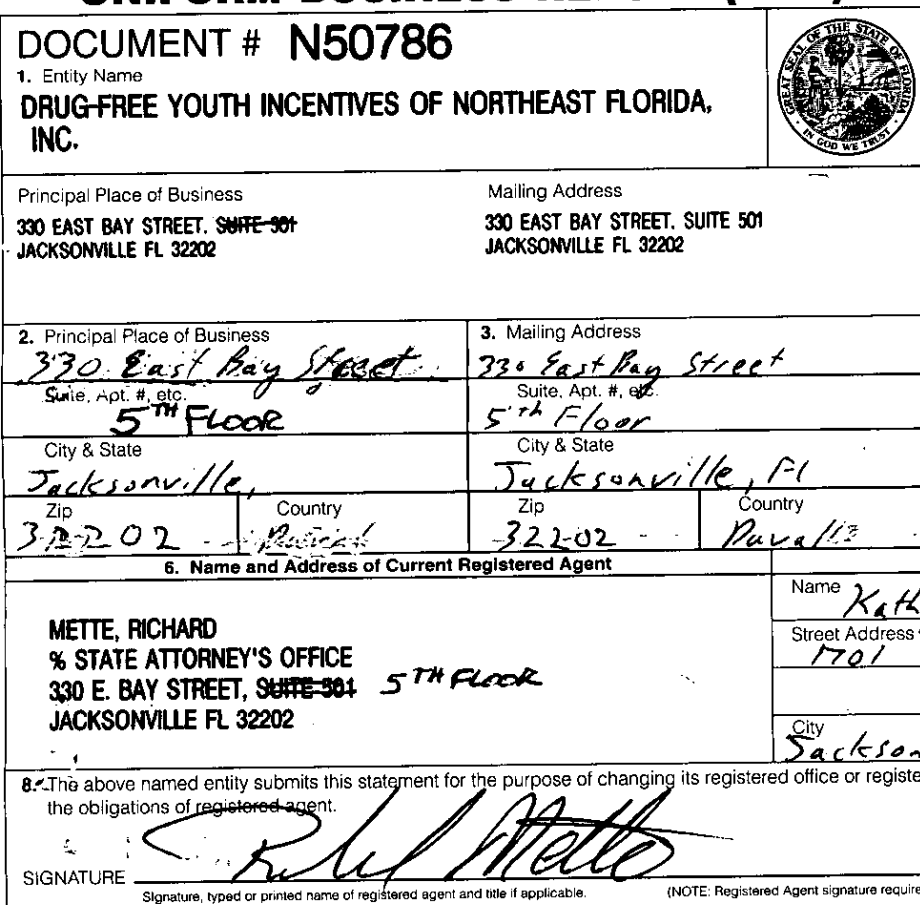 DOCUMENT # N50786
1. Entity Name
DRUG-FREE YOUTH INCENTIVES OF NORTHEAST FLORIDA,
INC.
GREAT SEAL OF THE STATE OF FLORIDA
IN GOD WE TRUST
Principal Place of Business
330 EAST BAY STREET. SUITE 501
JACKSONVILLE FL 32202
Mailing Address
330 EAST BAY STREET. SUITE 501
JACKSONVILLE FL 32202
2. Principal Place of Business
330 East Bay Street
Suite, Apt. #, etc.
5TH FLOOR
City & State
Jacksonville,
Zip
32202
Country
3. Mailing Address
330 East Bay Street
Suite, Apt. #, etc.
5th Floor
City & State
Jacksonville, Fl
Zip
32202
Country
6. Name and Address of Current Registered Agent
METTE, RICHARD
% STATE ATTORNEY'S OFFICE
330 E. BAY STREET, SUITE 501 5TH FLOOR
JACKSONVILLE FL 32202
Name
Kath
Street Address
1701
City
Jackson
8. The above named entity submits this statement for the purpose of changing its registered office or registe
the obligations of registered agent.
SIGNATURE
Signature, typed or printed name of registered agent and title if applicable. (NOTE: Registered Agent signature require